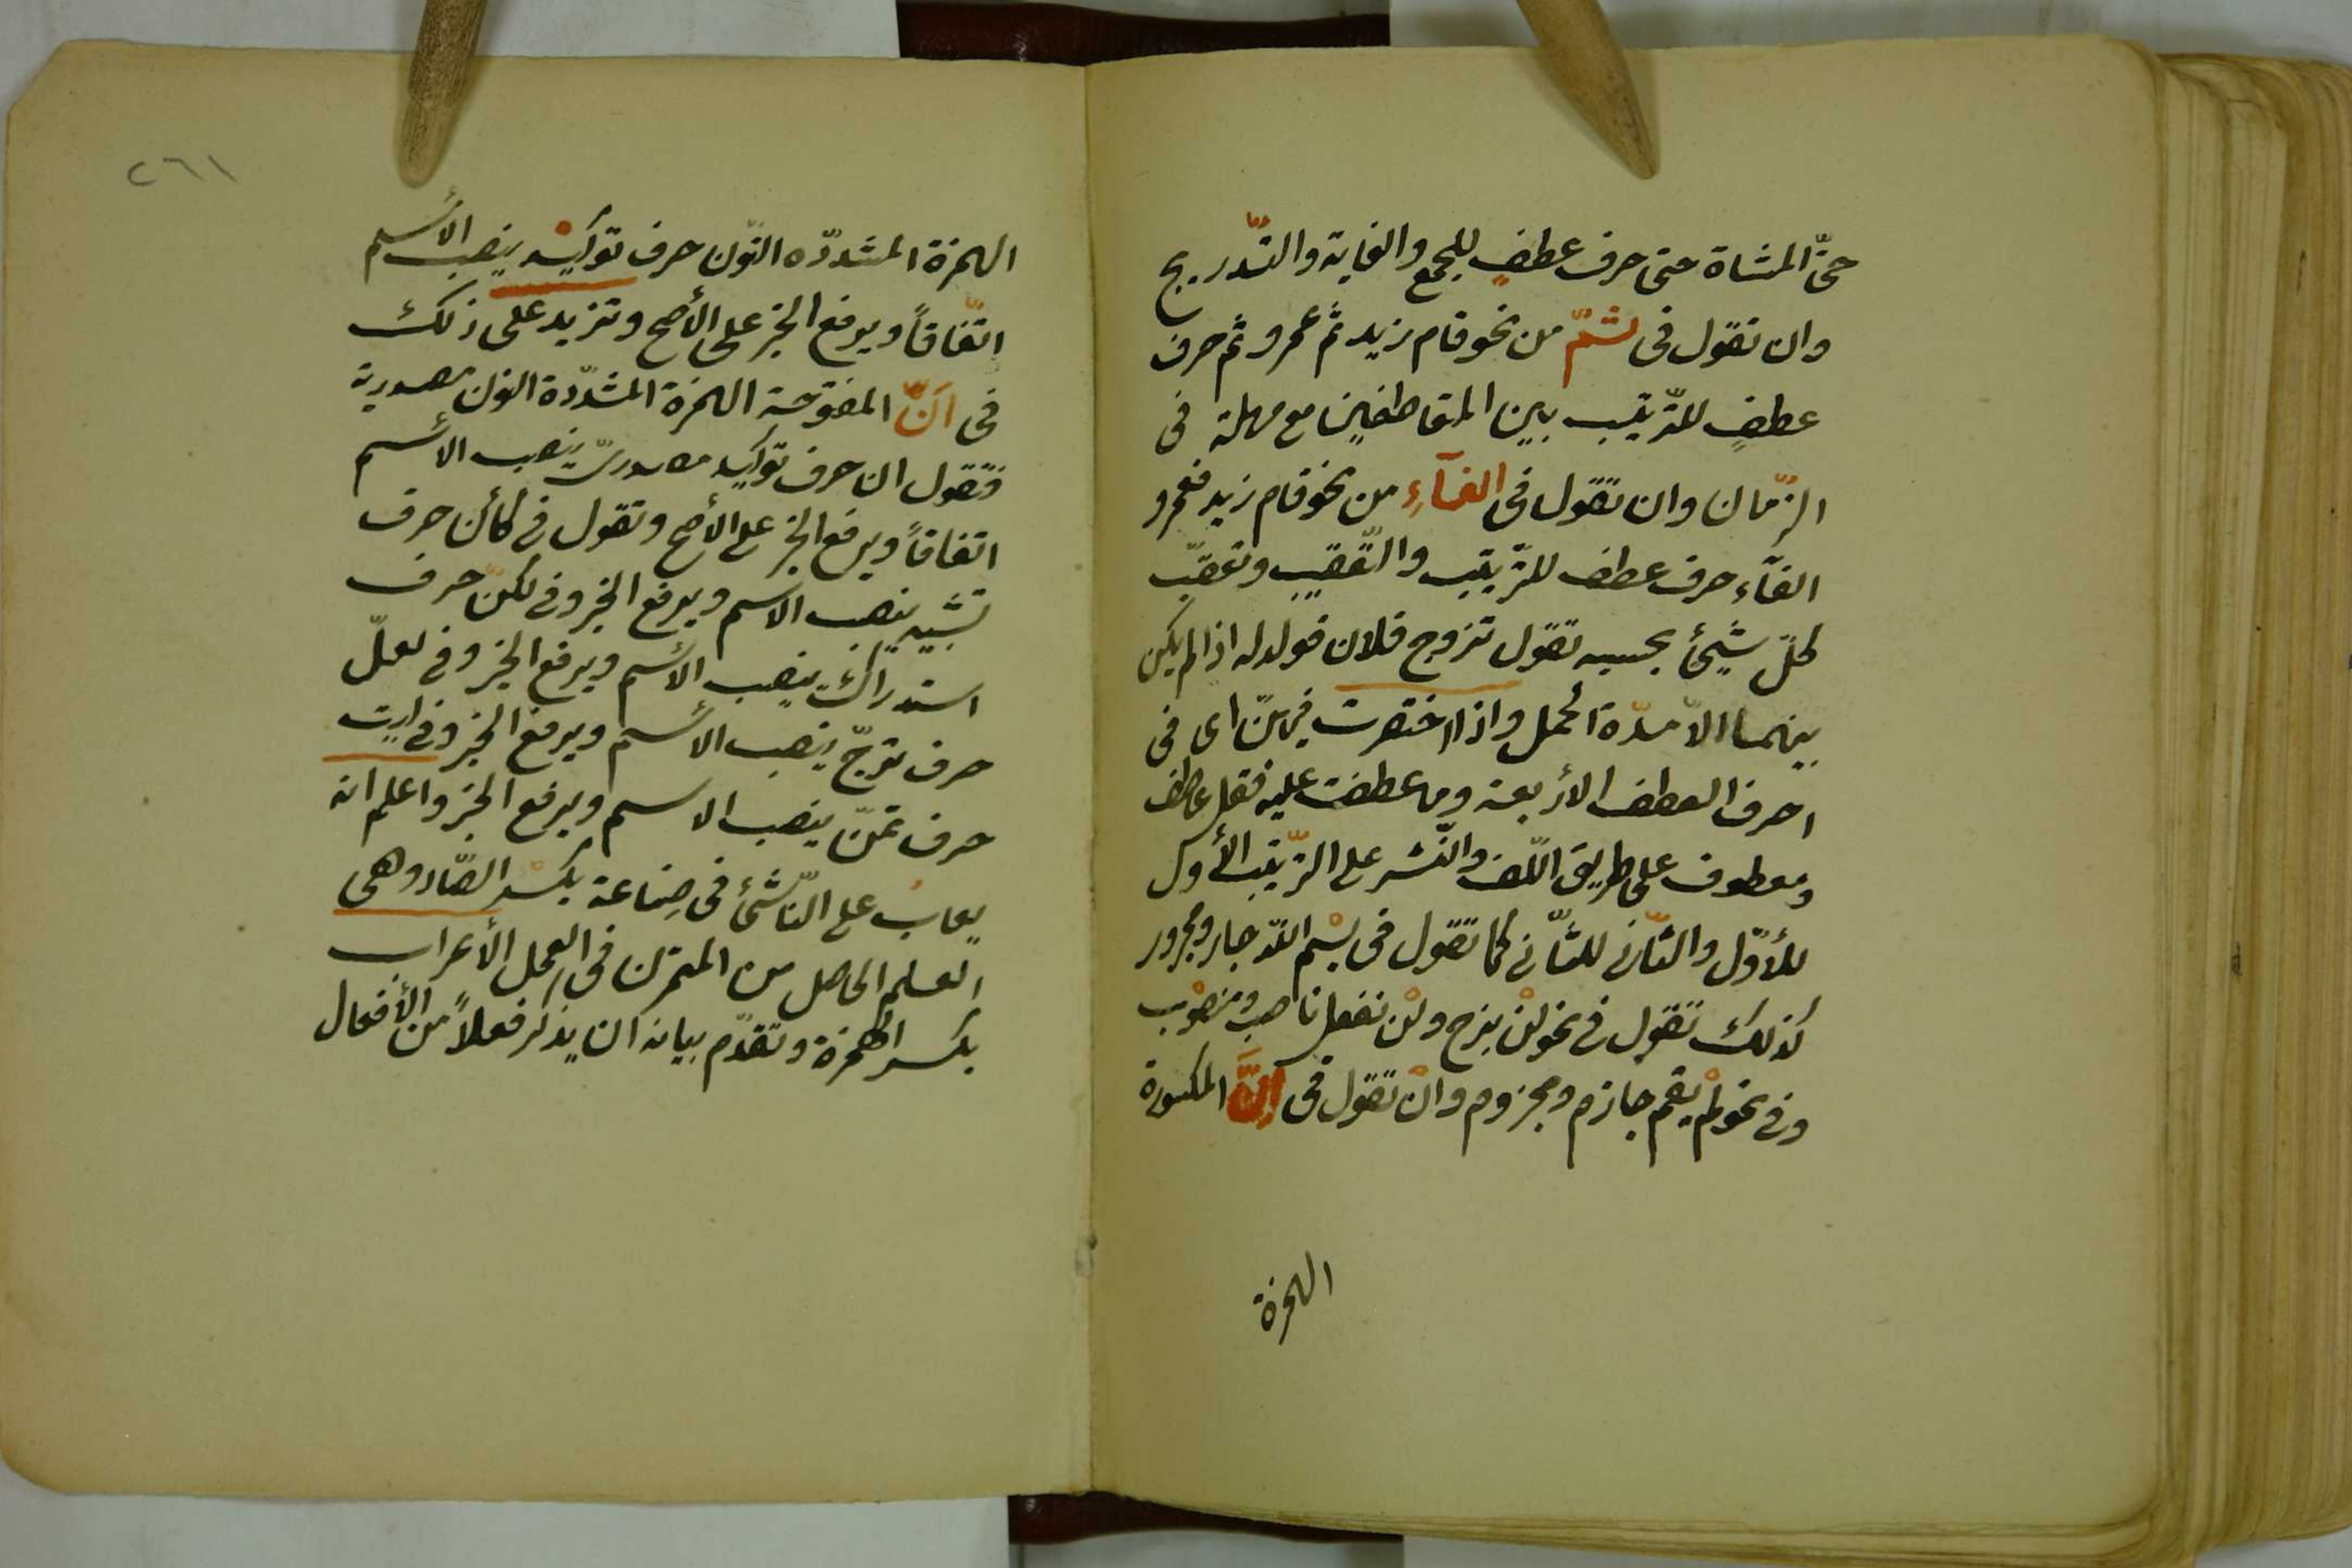 حتّى المشاة حتى حرف عطفٍ للجمع والغاية والتّدريج
وان تقول فى ثمّ من نحو قام زيد ثم عمرو ثم حرف
عطفٍ للتّرتيب بين المتعاطفين مع مهلة فى
الزّمان وان تقول فى الفآءِ من نحو قام زيد فعمرو
الفآء حرف عطف للتّرتيب والتّعقيب وتعقيب
كلّ شيئ بحسبه تقول تزوج فلان فولد له اذا لم يكن
بينهما الّا مدّة الحمل واذا اختصرت فيهنّ اى فى
احرف العطف الأربعة وما عطفت عليه فقل عاطف
ومعطوف على طريق اللّف والنّشر على التّرتيب الأول
للأوّل والثّانى للثّانى كما تقول فى بسْم اللّه جار ومجرور
كذلك تقول فى نحو لنْ نبرح ولنْ نفعل ناصب ومنصوب
وفى نحو لمْ يقم جازم ومجزوم وانْ تقول فى إنَّ المكسورة
الهمزة
٢٦١
الهمزة المشددّه النّون حرف توكيْد ينصب الأسم
اتّفاقاً ويرفع الخبر على الأصح وتزيد على ذلك
فى انّ المفتوحة الهمزة المشدّدة النون مصدرية
فتقول ان حرف توكيد مصدرىّ ينصب الأسم
اتفاقاً ويرفع الخبر على الأصح وتقول فى كأن حرف
تشبيه ينصب الاسم ويرفع الخبر وفى لكنّ حرف
استدراك ينصب الأسم ويرفع الخبر وفى لعلّ
حرف ترجّ ينصب الأسم ويرفع الخبر وفى ليت
حرف تمنّ ينصب الاسم ويرفع الخبر واعلم انه
يعابُ على النّاشئ فى صِناعة بكسْر الصّاد وهى
العلم الحاصل من التمرن فى العمل الأعراب
بكسر الهمزة وتقدّم بيانه ان يذكر فعلاً من الأفعال